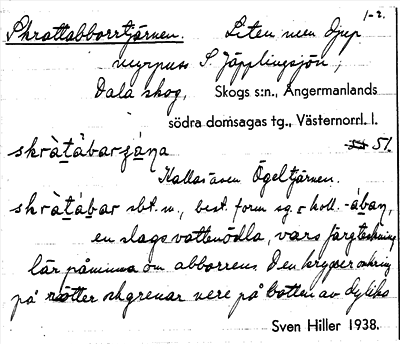 1-2.
Skrattabborrtjärnen. Liten men djup
myrpuss S. Jäpplingsjön,
Dala skog, Skogs s:n., Ångermanlands
södra domsagas tg., Västernorrl. l.
skràtàbarjä̀na 51.
Kallas även Ögeltjärnen.
skràtàbar sbt. n., best. form sg. koll. -àban,
en slags vattenödla, vars färgteckning
lär påminna om abborrens. Den kryper omkring
på rötter och grenar nere på botten av dylika
Sven Hiller 1938.